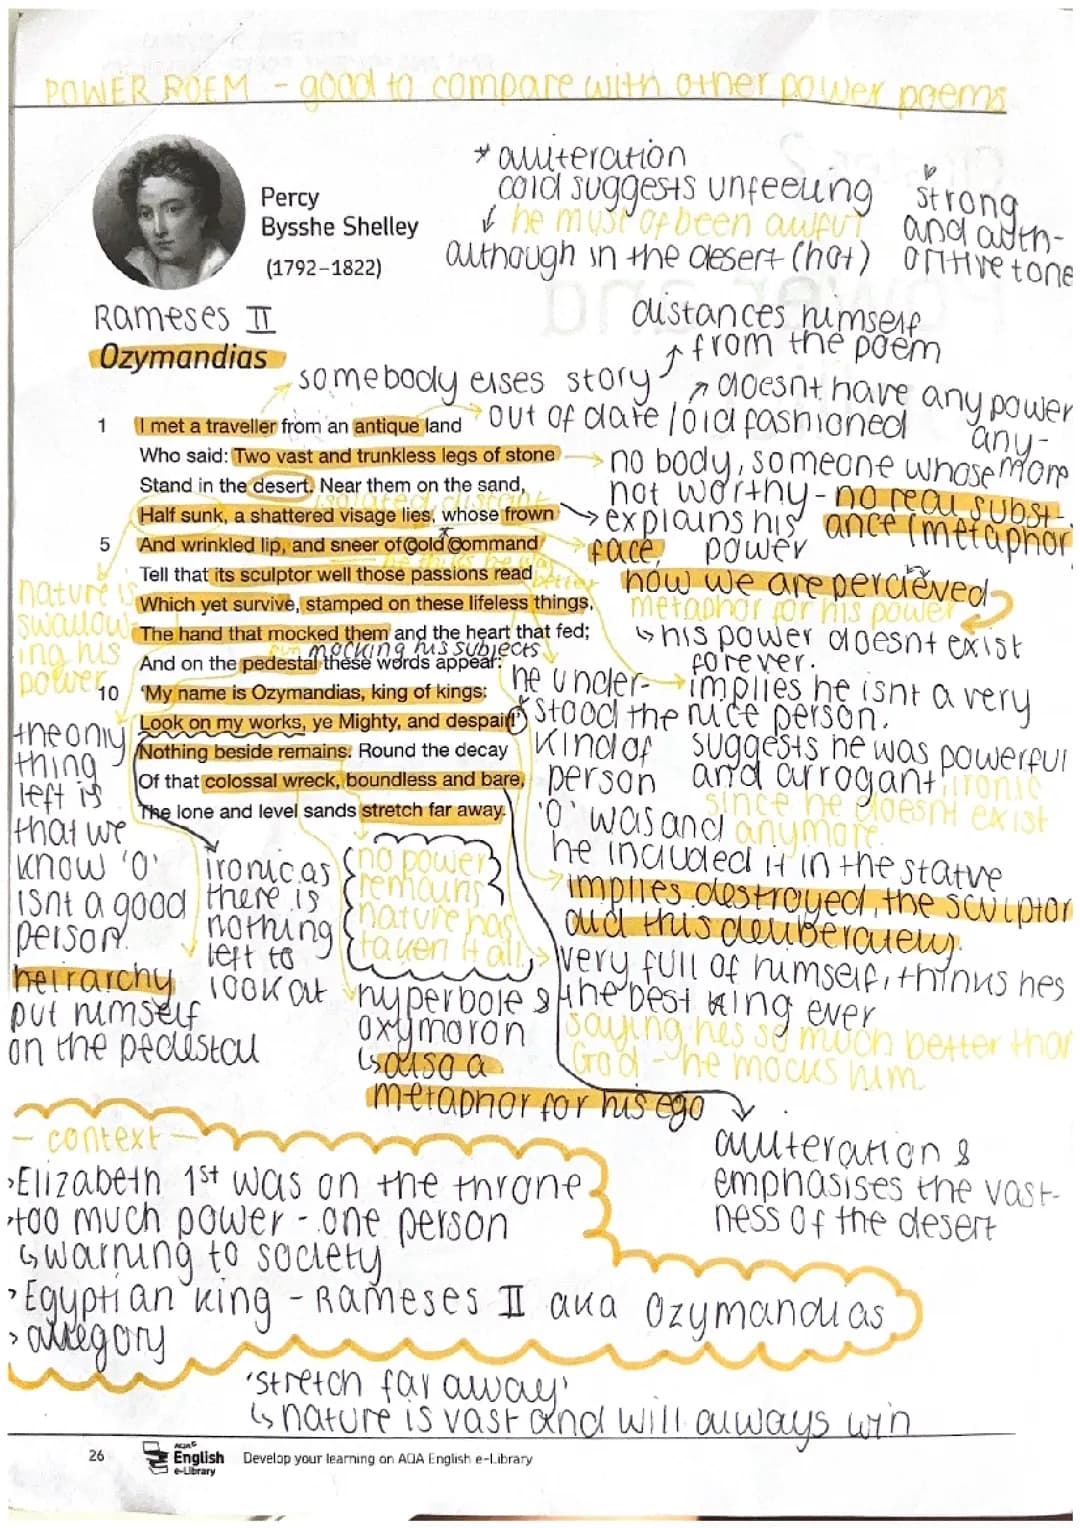 POWER POEM - good to compare with other power poems
* alliteration
cold suggests unfeeling
he must of been awful
although in the desert (hot)
strong
and auth-
oritive tone
Percy
Bysshe Shelley
(1792–1822)
Rameses II
Ozymandias
distances himself
from the poem
somebody elses story
doesnt have any power
any-
more
out of date / old fashioned
1 I met a traveller from an antique land
Who said: Two vast and trunkless legs of stone
Stand in the desert. Near them on the sand,
isolated, distant
Half sunk, a shattered visage lies, whose frown
5 And wrinkled lip, and sneer of cold command
Tell that its sculptor well those passions read
Which yet survive, stamped on these lifeless things,
The hand that mocked them and the heart that fed;
mocking his subjects
And on the pedestal these words appear:
10 'My name is Ozymandias, king of kings:
Look on my works, ye Mighty, and despair!'
Nothing beside remains. Round the decay
Of that colossal wreck, boundless and bare,
The lone and level sands stretch far away.
no body, someone whose
not worthy - no real subst-
ance (metaphor
explains his
face, power
how we are percieved
metaphor for his power
his power doesnt exist
forever.
implies he isnt a very
nice person.
suggests he was powerful
and arrogant, ironic
since he doesnt exist
anymore.
he under-
stood the
kind of
person
'O' was and
he included it in the statue
implies destroyed, the sculptor
did this deliberately.
very full of himself, thinks hes
the best king ever
saying hes so much better than
God - he mocks him
nature is
swallow
ing his
power
the only
thing
left is
that we
know 'O'
isnt a good
person.
heirarchy
put himself
on the pedestal
ironic as
there is
nothing
left to
look at
no power
remains
nature has
taken it all
hyperbole &
oxymoron
also a
metaphor for his ego
alliteration &
emphasises the vast-
ness of the desert
- context -
>Elizabeth 1st was on the throne
>too much power - one person
warning to society
>Egyptian king - Rameses II aka Ozymandias
>allegory
'stretch far away'
nature is vast and will always win
26
AQA
English
e-Library
Develop your learning on AQA English e-Library